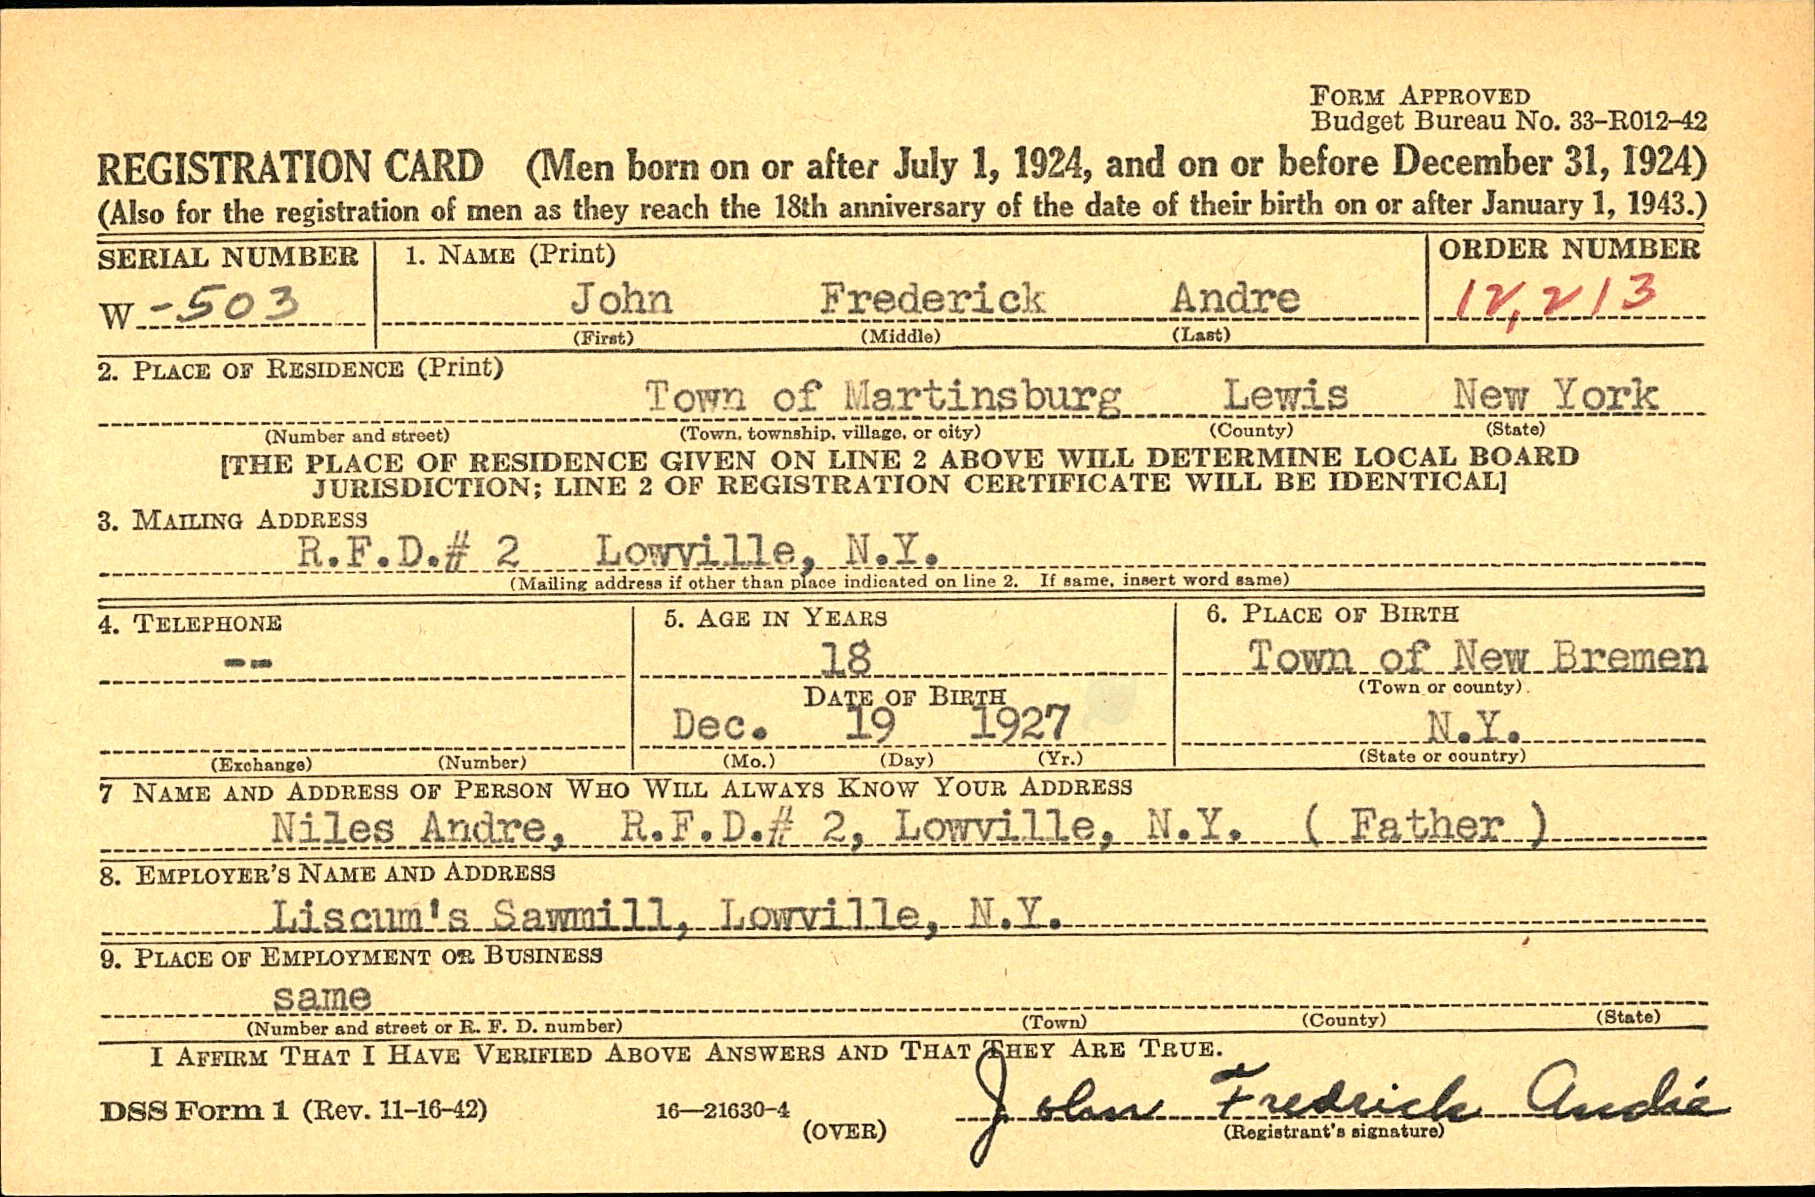 FORM APPROVED
Budget Bureau No. 33–R012–42
REGISTRATION CARD (Men born on or after July 1, 1924, and on or before December 31, 1924)
(Also for the registration of men as they reach the 18th anniversary of the date of their birth on or after January 1, 1943.)
SERIAL NUMBER 1. NAME (Print) ORDER NUMBER
W -503 John Frederick Andre 12,213
(First) (Middle) (Last)
2. PLACE OF RESIDENCE (Print)
Town of Martinsburg Lewis New York
(Number and street) (Town, township, village, or city) (County) (State)
[THE PLACE OF RESIDENCE GIVEN ON LINE 2 ABOVE WILL DETERMINE LOCAL BOARD
JURISDICTION; LINE 2 OF REGISTRATION CERTIFICATE WILL BE IDENTICAL]
3. MAILING ADDRESS
R.F.D.# 2 Lowville, N.Y.
(Mailing address if other than place indicated on line 2. If same, insert word same)
4. TELEPHONE 5. AGE IN YEARS 6. PLACE OF BIRTH
-- 18 Town of New Bremen
(Town or county)
DATE OF BIRTH
Dec. 19 1927 N.Y.
(Exchange) (Number) (Mo.) (Day) (Yr.) (State or country)
7 NAME AND ADDRESS OF PERSON WHO WILL ALWAYS KNOW YOUR ADDRESS
Niles Andre, R.F.D.# 2, Lowville, N.Y. ( Father )
8. EMPLOYER'S NAME AND ADDRESS
Liscum's Sawmill, Lowville, N.Y.
9. PLACE OF EMPLOYMENT OR BUSINESS
same
(Number and street or R. F. D. number) (Town) (County) (State)
I AFFIRM THAT I HAVE VERIFIED ABOVE ANSWERS AND THAT THEY ARE TRUE.
DSS Form 1 (Rev. 11-16-42) 16—21630-4 John Fredrick André
(OVER) (Registrant's signature)